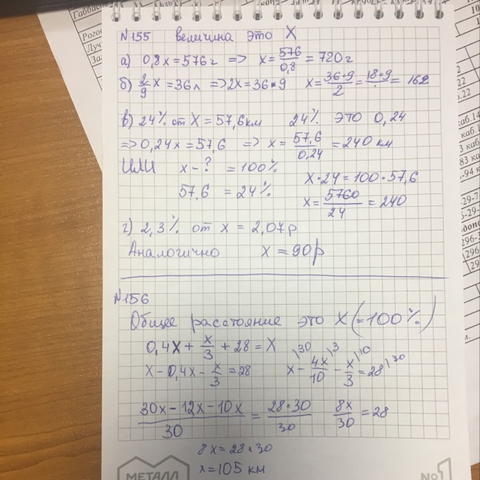 №155 величина это X
а) 0,8x = 576 г => x = 576/0,8 = 720 г
б) 2/9 x = 36 л => 2x = 36*9 x = 36*9/2 = 18*9 = 162
в) 24% от X = 57,6 км 24% это 0,24
=> 0,24x = 57,6 => x = 57,6/0,24 = 240 км
ИЛИ x - ? = 100%
57,6 = 24%
x*24 = 100*57,6
x = 5760/24 = 240
г) 2,3% от x = 2,07 р
Аналогично x = 90 р
№156
Общее расстояние это X (=100%)
0,4x + x/3 + 28 = x
x - 0,4x - x/3 = 28
x\30 - 4x/10\3 - x/3\10 = 28\30
30x - 12x - 10x/30 = 28*30/30 8x/30 = 28
8x = 28*30
x = 105 км
МЕТАЛЛ
№1